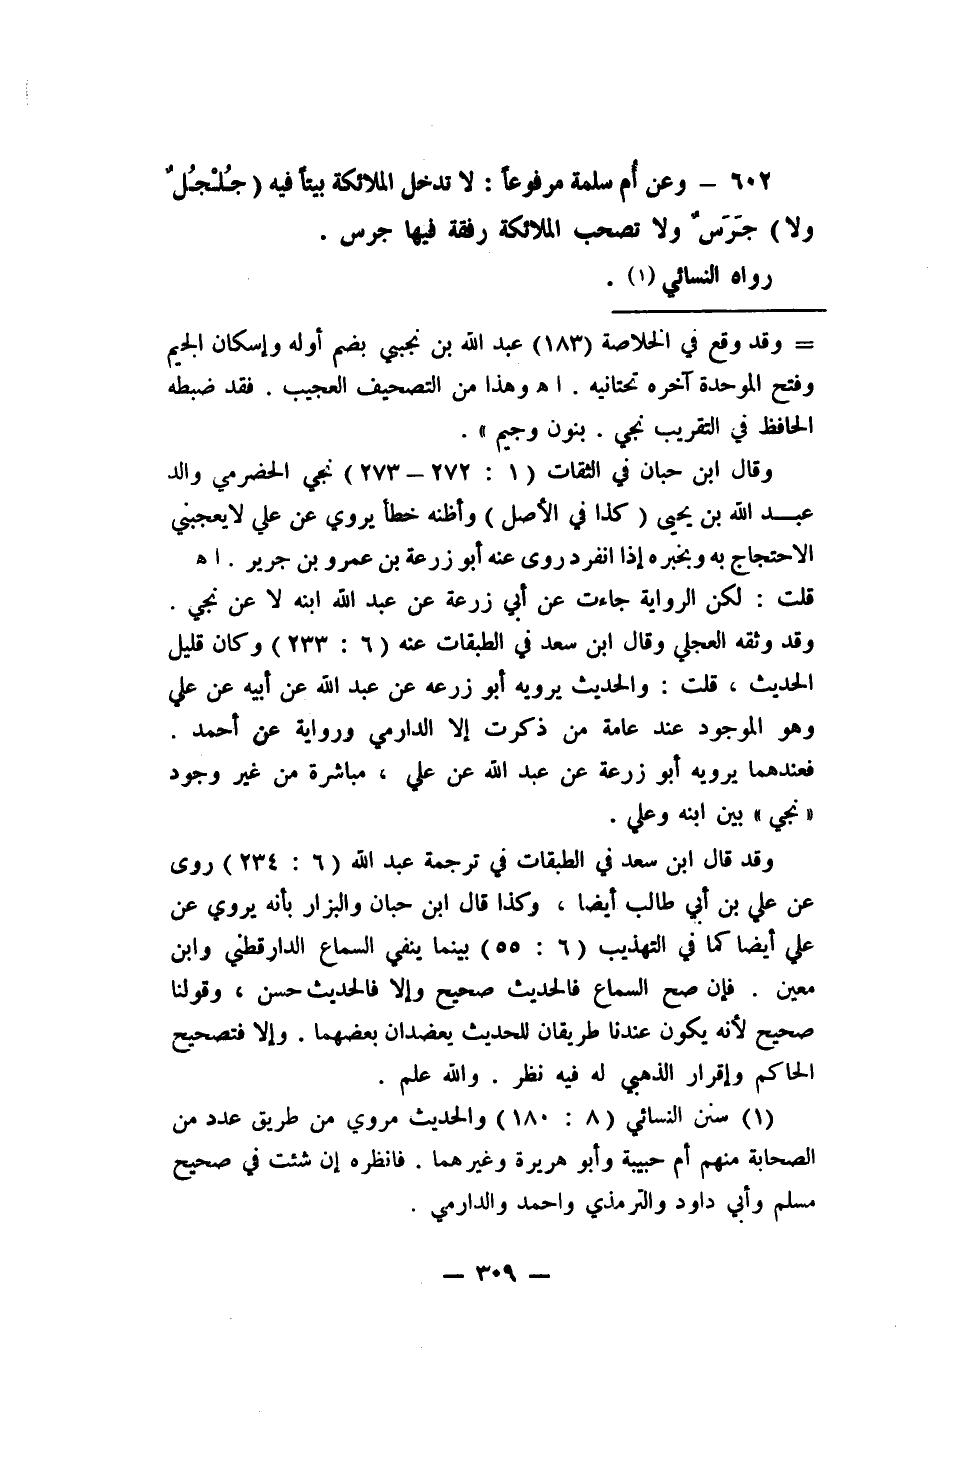 ٦٠٢ – وعن أُم سلمة مرفوعاً : لا تدخل الملائكة بيتاً فيه ( جُلْجُلٌ
ولا ) جَرَسٌ ولا تصحب الملائكة رفقة فيها جرس .
رواه النسائي (١) .
= وقد وقع في الخلاصة (١٨٣) عبد الله بن نجبي بضم أوله وإسكان الجيم
وفتح الموحدة آخره تحتانيه . ا ه وهذا من التصحيف العجيب . فقد ضبطه
الحافظ في التقريب نجي . بنون وجيم » .
وقال ابن حبان في الثقات ( ١ : ٢٧٢ – ٢٧٣ ) نجي الحضرمي والد
عبـــد الله بن يحيى ( كذا في الأصل ) وأظنه خطأ يروي عن علي لايعجبني
الاحتجاج به وبخبره إذا انفرد روى عنه أبو زرعة بن عمرو بن جرير . ا ه
قلت : لكن الرواية جاءت عن أبي زرعة عن عبد الله ابنه لا عن نجي .
وقد وثقه العجلي وقال ابن سعد في الطبقات عنه ( ٦ : ٢٣٣ ) وكان قليل
الحديث ، قلت : والحديث يرويه أبو زرعه عن عبد الله عن أبيه عن علي
وهو الموجود عند عامة من ذكرت إلا الدارمي ورواية عن أحمد .
فعندهما يرويه أبو زرعة عن عبد الله عن علي ، مباشرة من غير وجود
« نجي » بين ابنه وعلي .
وقد قال ابن سعد في الطبقات في ترجمة عبد الله ( ٦ : ٢٣٤ ) روى
عن علي بن أبي طالب أيضا ، وكذا قال ابن حبان والبزار بأنه يروي عن
علي أيضا كما في التهذيب ( ٦ : ٥٥ ) بينما ينفي السماع الدارقطني وابن
معين . فإن صح السماع فالحديث صحيح وإلا فالحديث حسن ، وقولنا
صحيح لأنه يكون عندنا طريقان للحديث يعضدان بعضهما . وإلا فتصحيح
الحاكم وإقرار الذهبي له فيه نظر . والله علم .
(١) سنن النسائي ( ٨ : ١٨٠ ) والحديث مروي من طريق عدد من
الصحابة منهم أم حبيبة وأبو هريرة وغيرهما . فانظره إن شئت في صحيح
مسلم وأبي داود والترمذي واحمد والدارمي .
– ٣٠٩ –